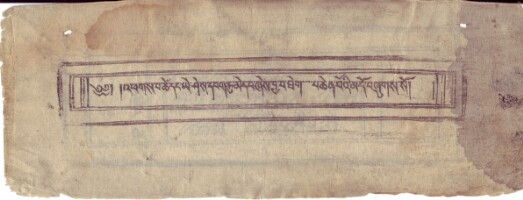 ༄༅། །འཕགས་པ་ཚེ་དང་ཡེ་ཤེས་དཔག་ཏུ་མེད་པ་ཞེས་བྱ་བ་ཐེག པ་ཆེན་པོའི་མདོ་བཞུགས་སོ